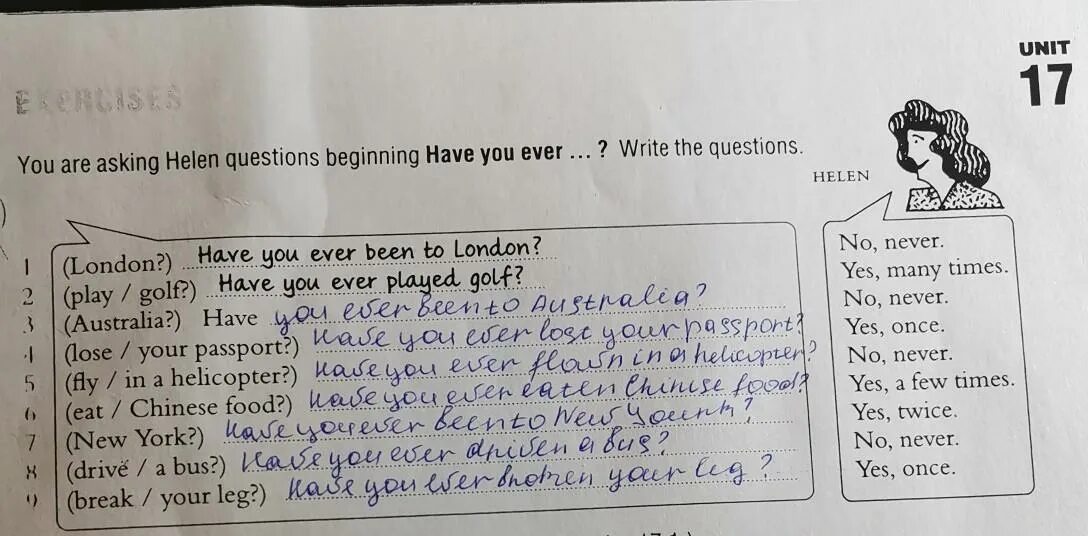 UNIT
17
EXERCISES
You are asking Helen questions beginning Have you ever ... ? Write the questions.
HELEN
1 (London?) Have you ever been to London?
2 (play / golf?) Have you ever played golf?
3 (Australia?) Have you ever been to Australia?
4 (lose / your passport?) Have you ever lost your passport?
5 (fly / in a helicopter?) Have you ever flown in a helicopter?
6 (eat / Chinese food?) Have you ever eaten Chinese food?
7 (New York?) Have you ever been to New Yourk?
8 (drive / a bus?) Have you ever driven a bus?
9 (break / your leg?) Have you ever broken your leg?
No, never.
Yes, many times.
No, never.
Yes, once.
No, never.
Yes, a few times.
Yes, twice.
No, never.
Yes, once.